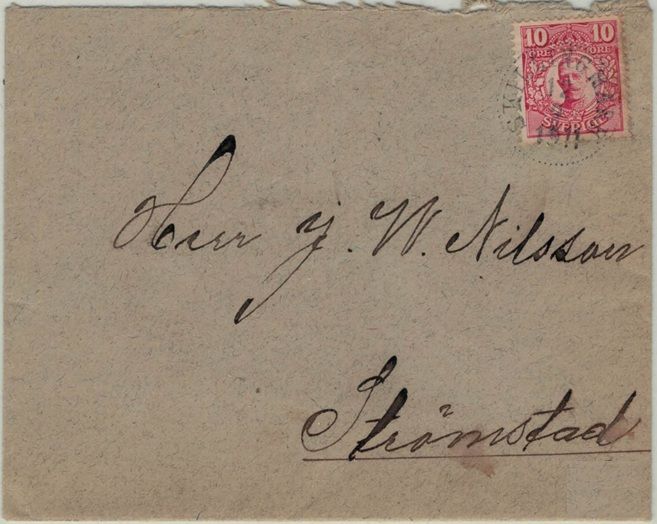 10 10
ÖRE ÖRE
SVERIGE
12
1911
Herr J. W. Nilsson
Strömstad